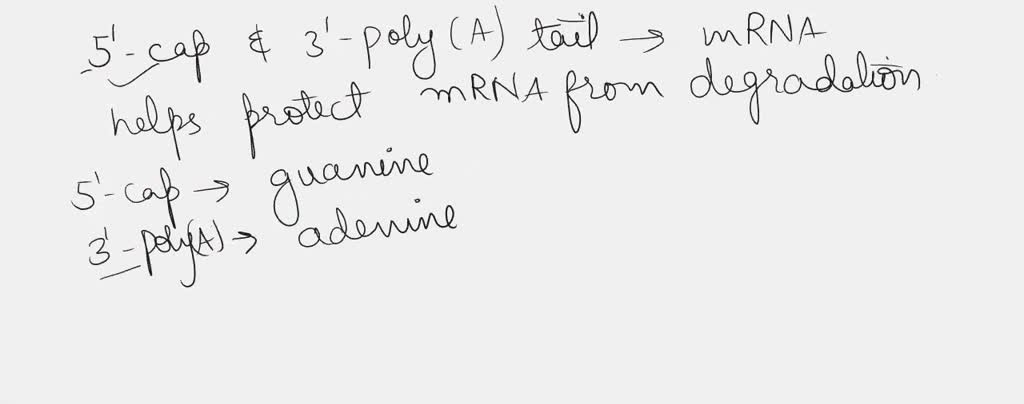 5'-cap & 3'-poly (A) tail → mRNA
helps protect mRNA from degradation
5'-cap → guanine
3'-poly(A) → adenine